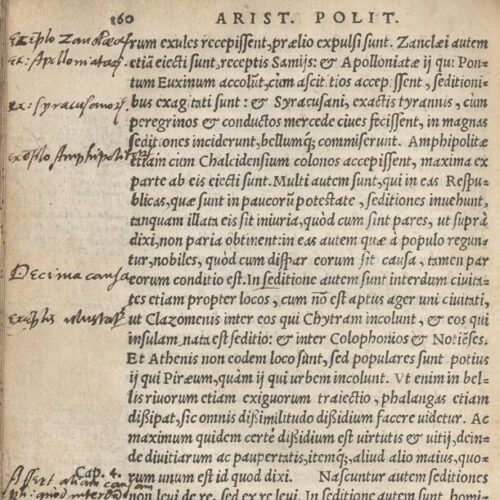 160 ARIST. POLIT.
rum exules recepissent, prælio expulsi sunt. Zanclæi autem
etiã eiecti sunt, receptis Samijs: & Apolloniatæ ij qui Pon-
tum Euxinum accolũt, cùm ascititios accepissent, seditioni-
bus exagitati sunt: & Syracusani, exactis tyrannis, cùm
peregrinos & conductos mercede ciues fecissent, in magnas
seditiones inciderunt, bellumq́; commiserunt. Amphipolitæ
etiam cùm Chalcidensium colonos accepissent, maxima ex
parte ab eis eiecti sunt. Multi autem sunt, qui in eas Respu-
blicas, quæ sunt in paucorũ potestate, seditiones inuehunt,
tanquam illata eis sit iniuria, quòd cùm sint pares, ut suprà
dixi, non paria obtinent: in eas autem quæ à populo regun-
tur, nobiles, quòd cùm dispar eorum sit causa, tamen par
eorum conditio est. In seditione autem sunt interdum ciuita-
tes etiam propter locos, cum nõ est aptus ager uni ciuitati,
ut Clazomenis inter eos qui Chytram incolunt, & eos qui
insulam, nata est seditio: & inter Colophonios & Notiẽses.
Et Athenis non eodem loco sũnt, sed populares sunt potius
ij qui Piræum, quàm ij qui urbem incolunt. Vt enim in bel-
lis riuorum etiam exiguorum traiectio, phalangas etiam
dissipat, sic omnis dissimilitudo dissidium facere uidetur. Ac
maximum quidem certè dissidium est uirtutis & uitij, dein-
de diuitiarum ac paupertatis, itemq́; aliud alio maius, quo-
rum unum est id quod dixi. Nascuntur autem seditiones
non leui de re, sed ex re leui. In
Exẽplo Zanclæorũ
ex: Apolloniataꝝ
ex: Syracusanorũ
Exẽplo Amphipolitaꝝ
Decima causa
Cap. 4.